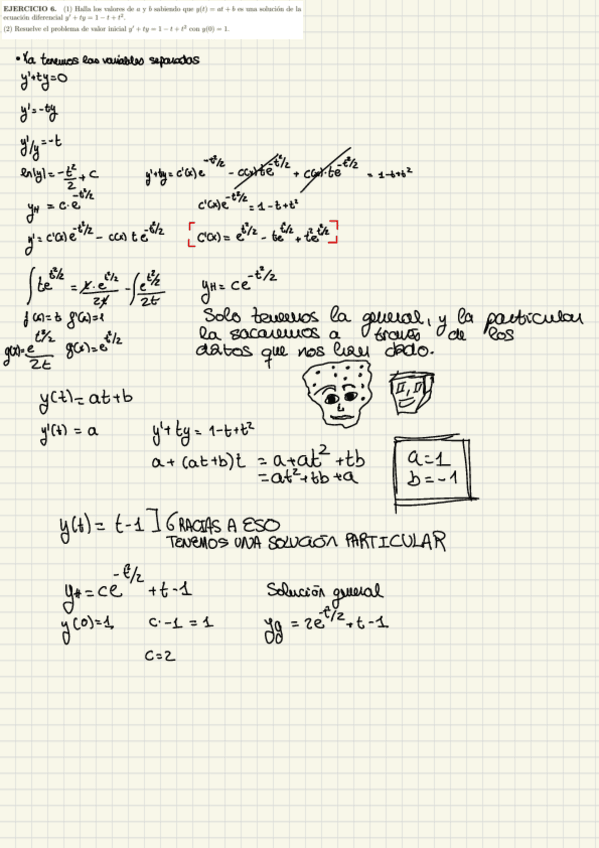 EJERCICIO 6. (1) Halla los valores de a y b sabiendo que y(t) = at + b es una solución de la
ecuación diferencial y' + ty = 1 − t + t².
(2) Resuelve el problema de valor inicial y' + ty = 1 − t + t² con y(0) = 1.
• Ya tenemos las variables separadas
y'+ty=0
y'=-ty
y'/y=-t
ln|y|=-t²/2+c
y'+ty=c'(x)e^{-t²/2} - c(x)te^{-t²/2} + c(x)·te^{-t²/2} = 1-t+t²
y_H = c·e^{-t²/2}
c'(x)e^{-t²/2}=1-t+t²
y'=c'(x)e^{-t²/2} - c(x)te^{-t²/2}
[c'(x)=e^{t²/2}-te^{t²/2}+t²e^{t²/2}]
∫te^{t²/2} = t·e^{t²/2}/2t - ∫e^{t²/2}/2t
y_H=ce^{-t²/2}
f(x)=t f'(x)=1
g(x)=e^{t²/2}/2t g'(x)=e^{t²/2}
Solo tenemos la general, y la particular
la sacaremos a través de los
datos que nos han dado.
y(t)=at+b
y'(t)=a
y'+ty=1-t+t²
a+(at+b)t = a+at²+tb
=at²+tb+a
a=1
b=-1
y(t)=t-1] GRACIAS A ESO
TENEMOS UNA SOLUCIÓN PARTICULAR
=ce^{-t²/2}+t-1
Solución general
y(0)=1, c·-1=1
yg=2e^{-t²/2}+t-1
c=2